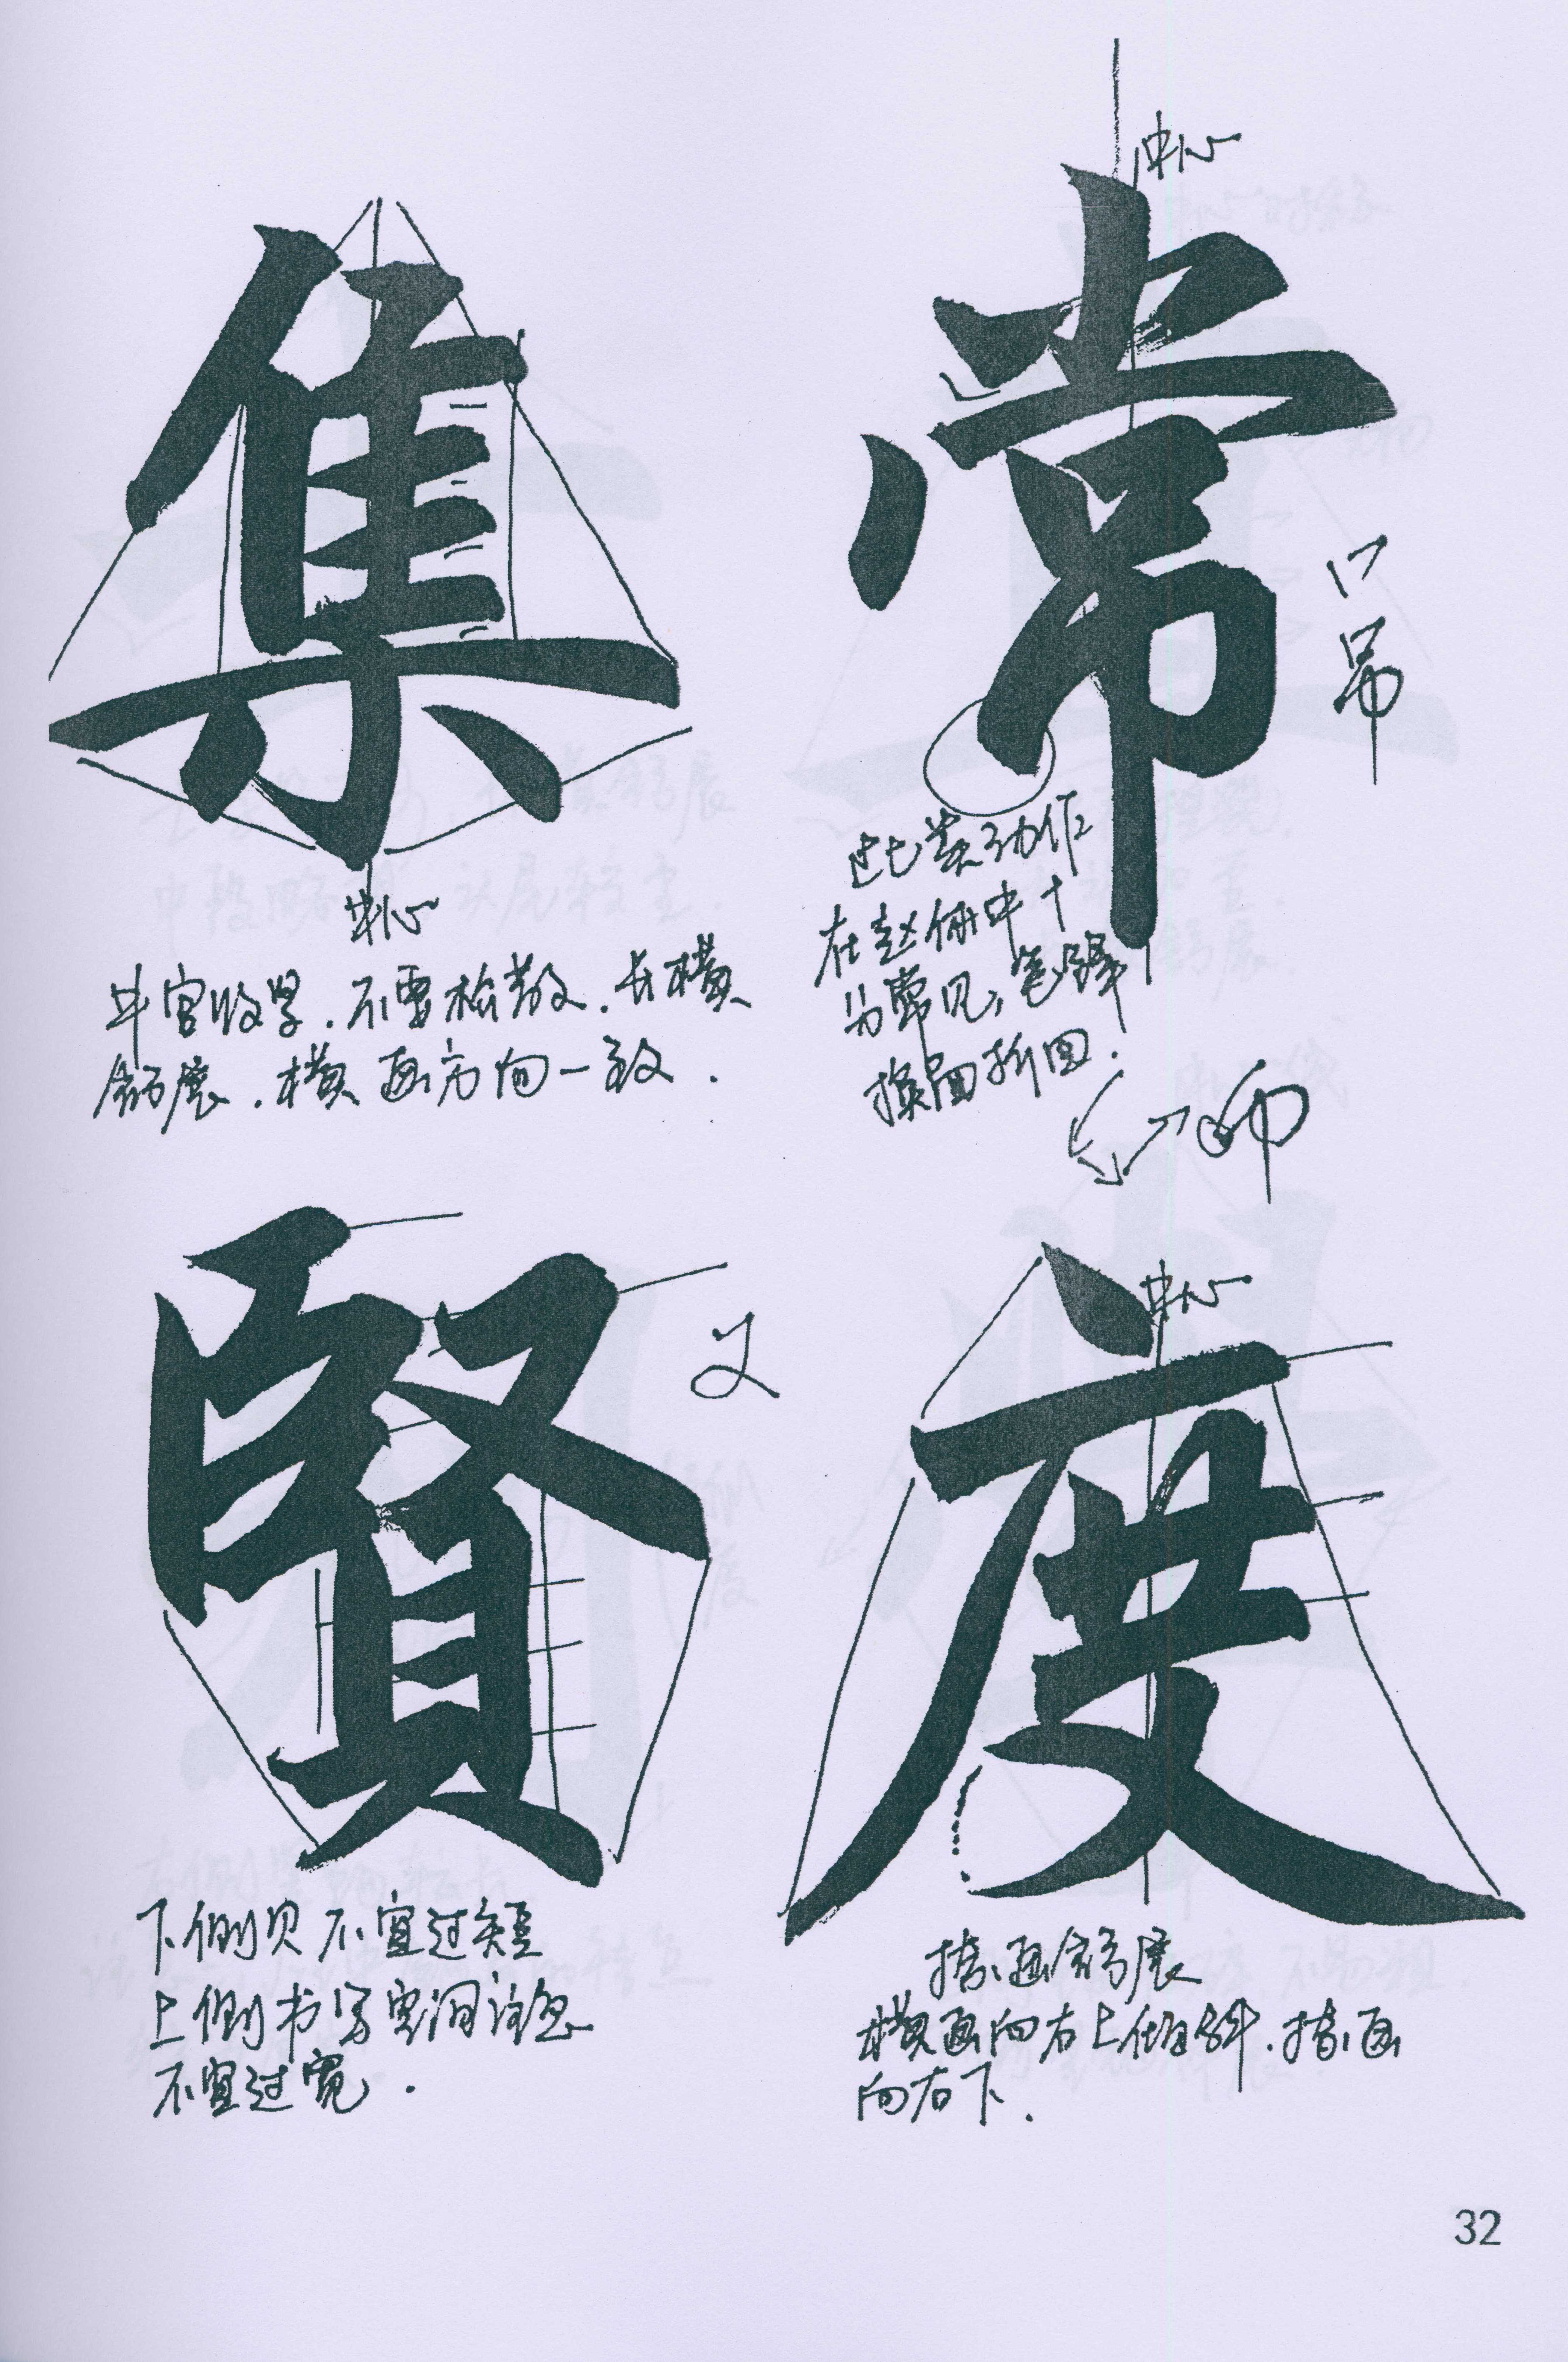 集
中心
中宫收紧.不要松散.长横
舒展.横画方向一致.
常
中心
此类动作
在赵佶中十
分常见,笔锋
换面折回.
賢
又
下侧贝不宜过短
上侧书写空间注意
不宜过宽.
度
中心
捺画舒展
横画向右上倾斜.捺画
向右下.
32